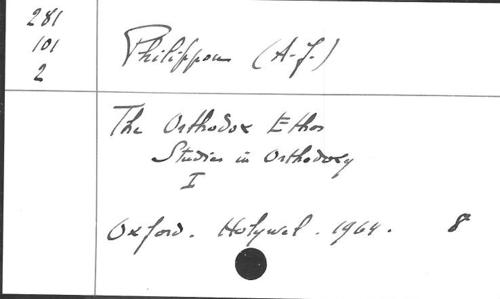 281
101
2
Philippou (A-J.)
The Orthodox Ethos
Studies in Orthodoxy
I
Oxford. Holywel. 1964. 8